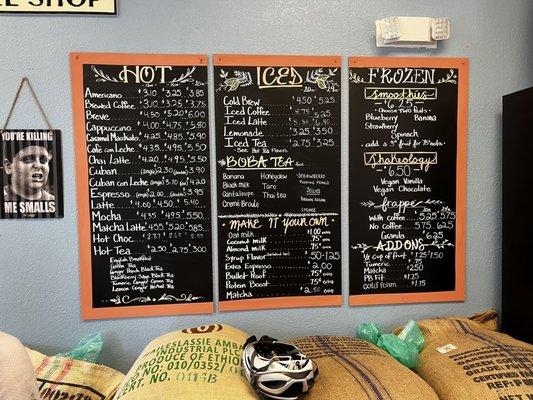 SHOP
YOU'RE KILLING
ME SMALLS
HOT
Americano $3.10 $3.25 $3.85
Brewed Coffee $3.10 $3.25 $3.75
Breve $4.50 $5.20 $6.00
Cappuccino $4.00 $4.75 $5.80
Caramel Macchiato $4.25 $4.85 $5.90
Café con Leche $4.35 $4.95 $5.50
Chai Latte $4.20 $4.95 $5.50
Cuban
Cuban con Leche
Espresso
Latte $4.00 $4.50 $5.40
Mocha $4.35 $4.95 $5.50
Matcha Latte $4.55 $5.20 $5.85
Hot Choc.
Hot Tea $2.50 $2.75 $3.00
English Breakfast
Green Tea
Ginger Peach Black Tea
Blackberry Sage Black Tea
Turmeric Ginger Green Tea
Lemon Ginger Herbal Tea
ICED
Cold Brew $4.50 $5.25
Iced Coffee $4.75 $5.25
Iced Latte
Lemonade $3.25 $3.50
Iced Tea $2.75 $3.25
- See Hot Tea Flavors
BOBA TEA
Banana Honeydew Strawberry
Black milk Taro
Cantaloupe Thai tea
Creme Brulé
MAKE IT YOUR OWN
Oat milk $1.00
Coconut milk .75¢
Almond milk .75¢
Syrup Flavor .50-1.25
Extra Espresso $2.00
Bullet Proof .75¢
Protein Boost .75¢
Matcha $2.50
FROZEN
smoothies
$6.25
- Choose Two Fruits -
Blueberry Banana
Strawberry
Spinach
- add a 3rd fruit for 75¢ extra -
Shakeology
$6.50
Vegan Vanilla
Vegan Chocolate
frappe
with coffee $5.25 $5.75
No coffee 5.75 $6.25
Granita 6.25
ADD ONS
1/2 cup of fruit $1.25 $1.50
Tumeric $.75
Matcha $2.50
PB Fit $1.75
Cold foam $1.15
SELASSIE 1487
INDUSTRIAL
PRODUCT OF
CERT. NO. 010/0352